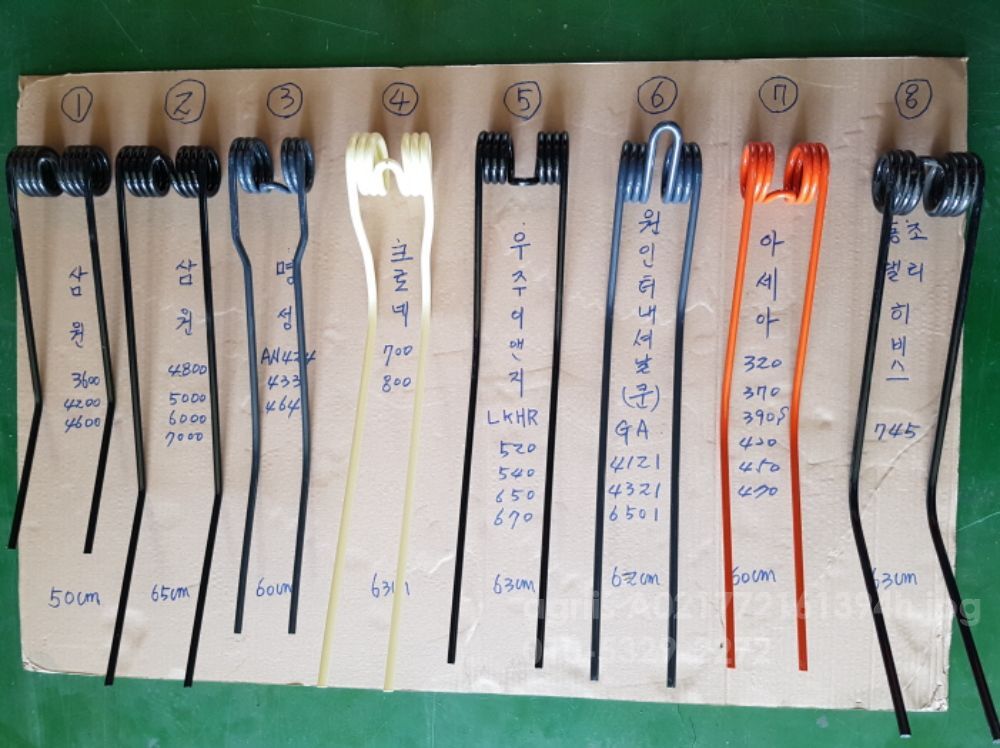 ①
삼원
3600
4200
4600
50cm
②
삼원
4800
5000
6000
7000
65cm
③
명성
AW424
433
464
60cm
④
크로넥
700
800
63cm
⑤
우주이앤지
LKHR
520
540
650
670
63cm
⑥
원인터내셔날
(쿤)
GA
4121
4321
6501
62cm
⑦
아세아
320
370
390S
420
450
470
60cm
⑧
동조
델리히비스
745
63cm